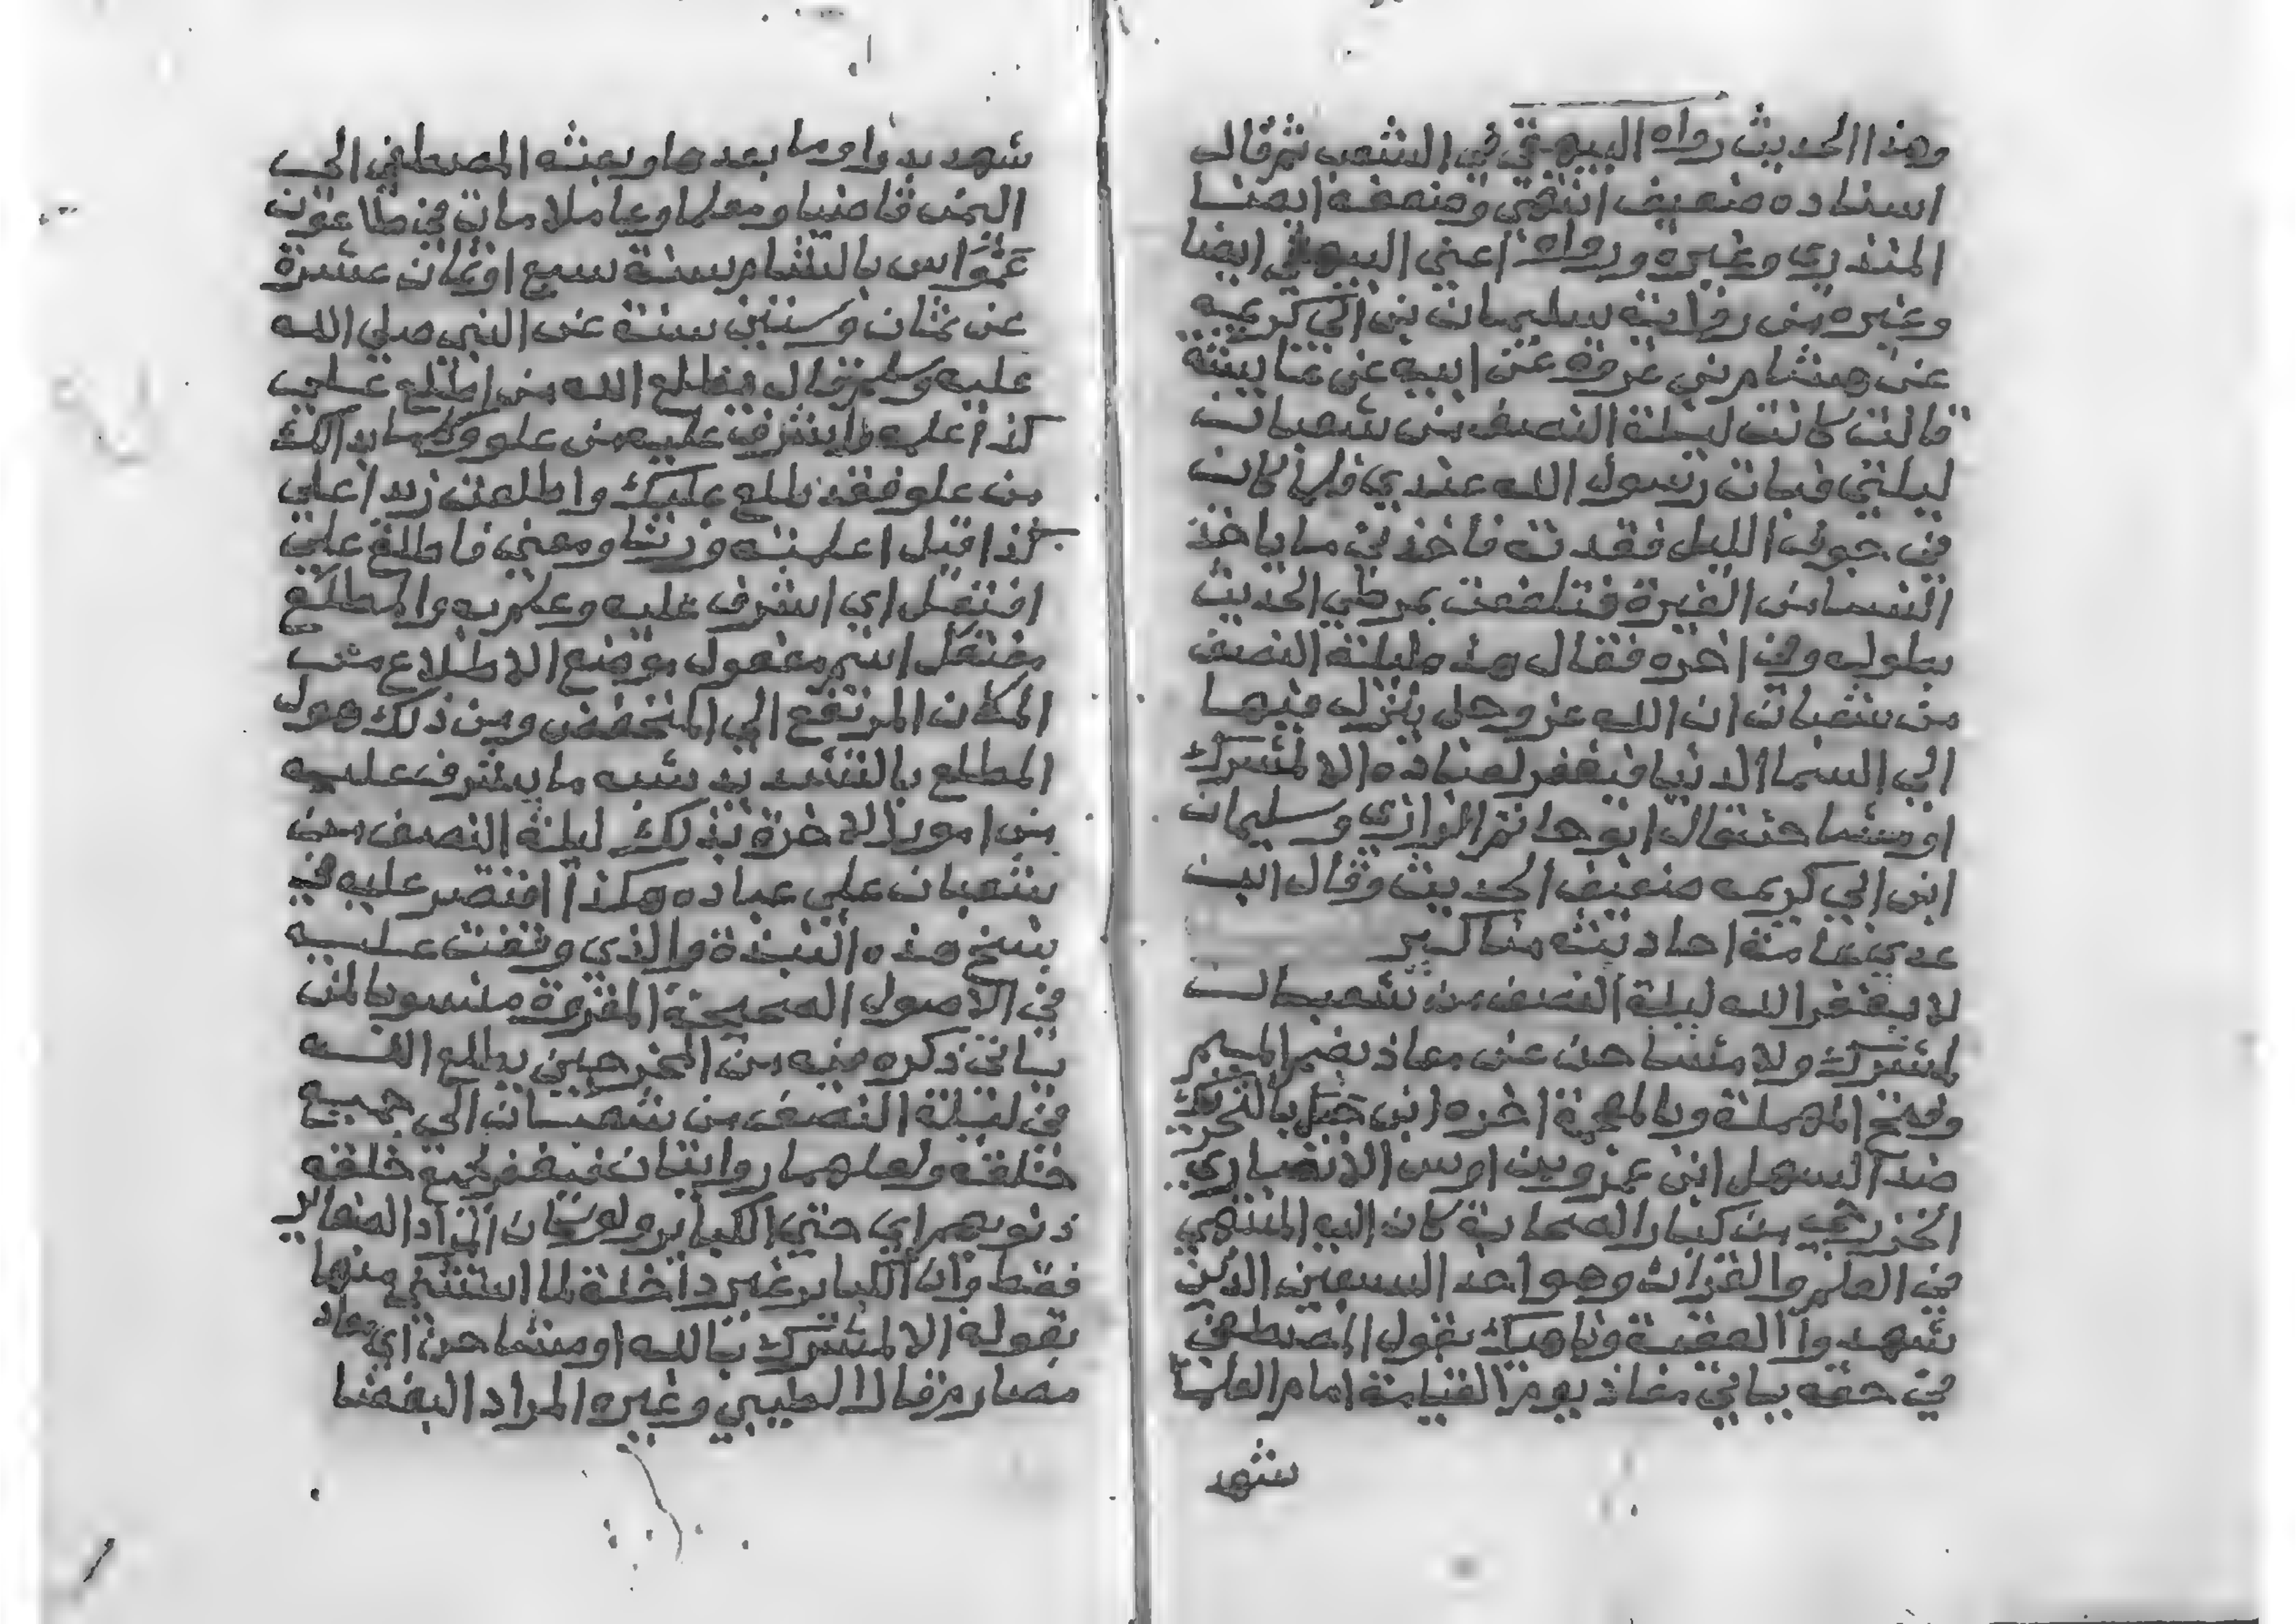 وهذا الحديث رواه البيهقي في الشعب ثم قال
اسناده ضعيف انتهى وضعفه ايضا
المنذري وغيره ورواه اعني البيهقي ايضا
وغيره من رواية سليمان بن ابي كريمه
عن هشام بن عروه عن ابيه عن عايشة
قالت كانت ليلة النصف من شعبان
ليلتي فبات رسول الله عندي فلما كان
في جوف الليل فقدته فاخذني ما ياخذ
النسا من الغيرة فتلفعت بمرطي الحديث
بطوله وفي اخره فقال هذه ليلة النصف
من شعبان ان الله عز وجل ينزل فيها
الي السما الدنيا فيغفر لعباده الا لمشرك
او مشاحن قال ابو حاتم الرازي وسليمان
ابن ابي كريمه ضعيف الحديث وقال ابن
عدي عامة احاديثه مناكير
لا يغفر الله ليلة النصف من شعبان
لمشرك ولا مشاحن عن معاذ بضم الميم
وفتح المهملة وبالمعجمة اخره ابن جبل بالتحريك
ضد السهل ابن عمرو بن اوس الانصاري
الخزرجي من كبار الصحابة كان اليه المنتهي
في العلم والقران وهو احد السبعين الذين
شهدوا العقبة وناهيك بقول المصطفي
في حقه ياتي معاذ يوم القيامة امام العلما
شهد
شهد بدرا وما بعدها وبعثه المصطفي الي
اليمن قاضيا ومعلما وعاملا مات في طاعون
عمواس بالشام سنة سبع او ثمان عشرة
عن ثمان وستين سنة عن النبي صلي الله
عليه وسلم قال يطلع الله من اطلع علي
كذا علي اشرف عليه من علو وكلما بدا لك
من علو فقد طلع عليك واطلعت زيدا علي
كذا قبل اعلمته وزنا ومعني فاطلع علي
افتعل اي اشرف عليه وعلم به والمطلع
مفتعل اسم مفعول موضع الاطلاع من
المكان المرتفع الي المنخفض ومن ذلك هول
المطلع بالتشديد شبه ما يشرف عليه
من امور الاخرة بذلك ليلة النصف من
شعبان علي عباده هكذا اقتصر عليه في
نسخ هذه النبذة والذي وقفت عليه
في الاصول الصحيحة المقروة منسوبا لمن
ياتي ذكره فيه من المخرجين يطلع الله
في ليلة النصف من شعبان الي جميع
خلقه ولعلهما روايتان فيغفر لجميع خلقه
ذنوبهم اي حتي الكباير ولو كان المراد الصغاير
فقط وان الكباير غير داخلة لما استثني منها
بقوله الا لمشرك بالله او مشاحن اي معاد
مصارم قال الطيبي وغيره المراد البغضا